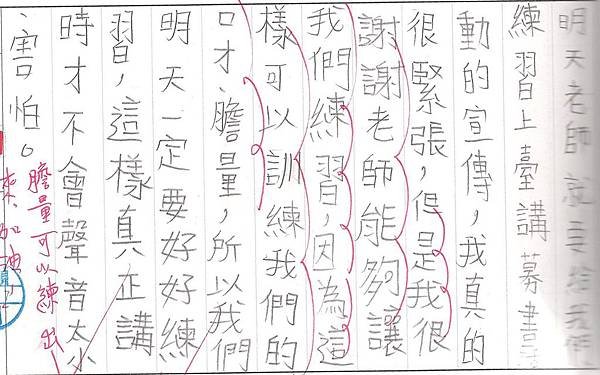 明天老師就要給我們
練習上臺講募書活
動的宣傳，我真的
很緊張，但是我很
謝謝老師能夠讓
我們練習，因為這
樣可以訓練我們的
口才、膽量，所以我們
明天一定要好好練
習，這樣真正講
時才不會聲音太小
、害怕。
膽量可以練出
來加油